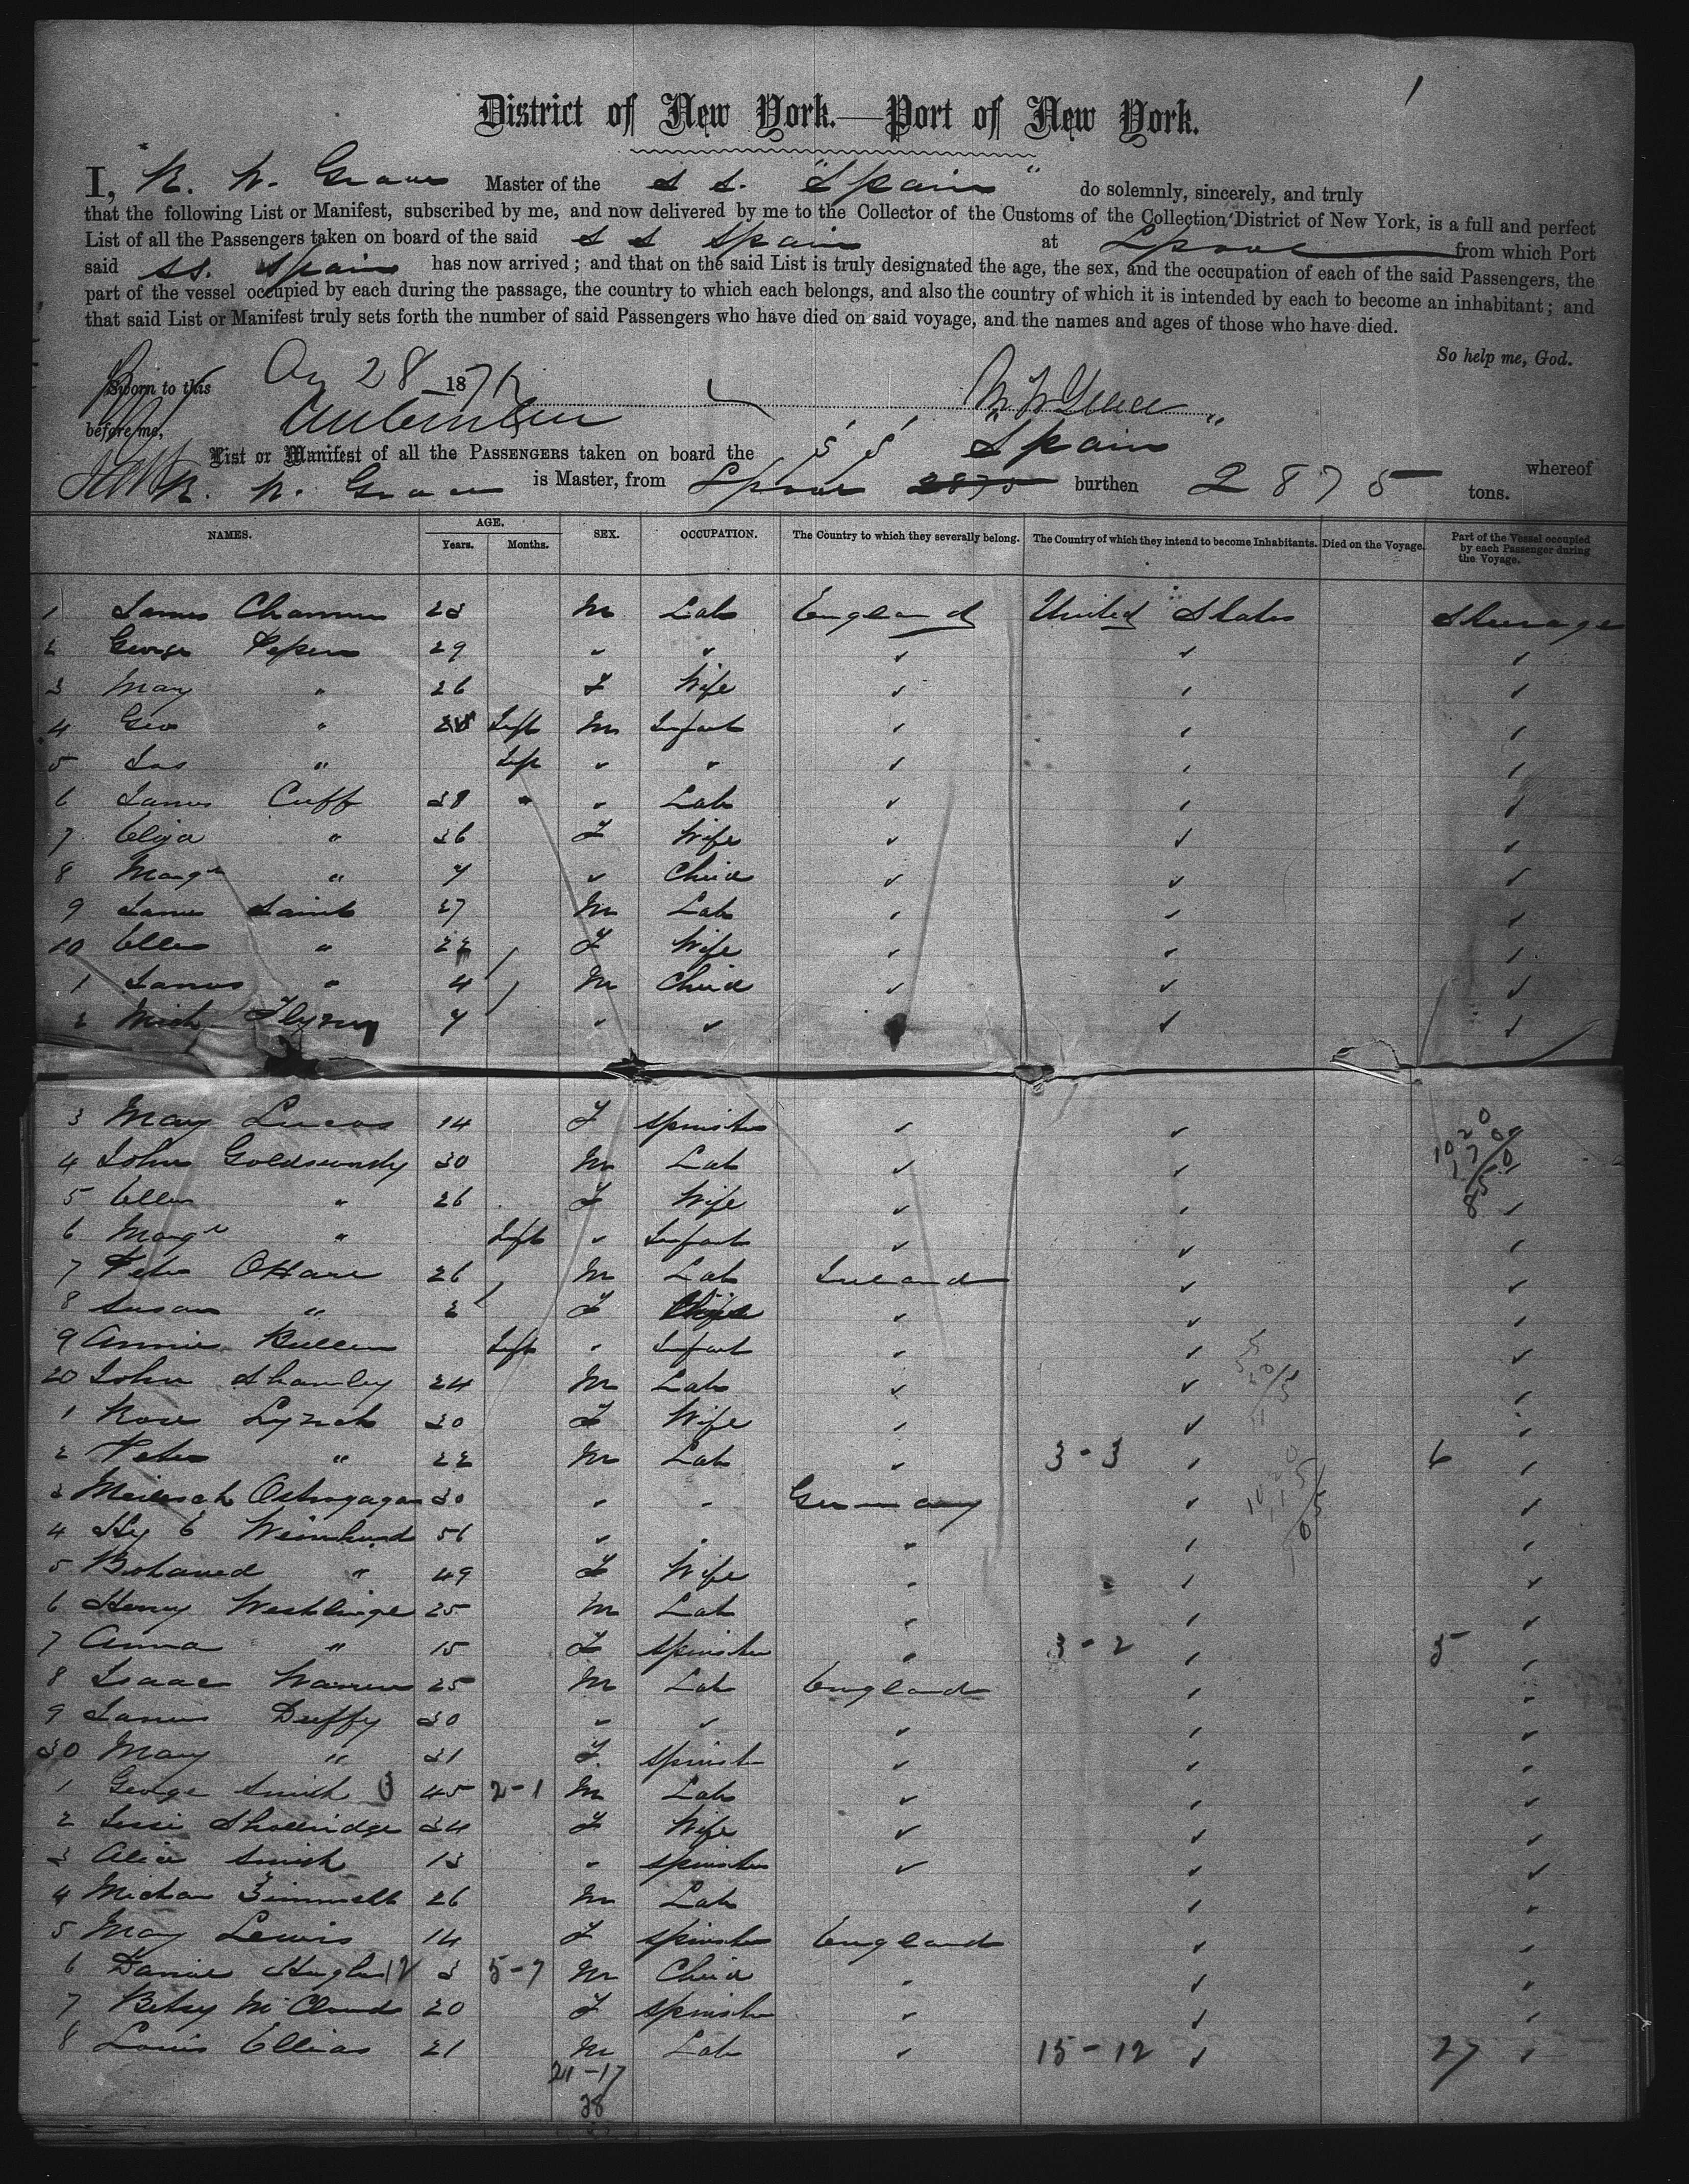 1
District of New York.—Port of New York.
I, R. W. Grace Master of the S S. "Spain" do solemnly, sincerely, and truly
that the following List or Manifest, subscribed by me, and now delivered by me to the Collector of the Customs of the Collection District of New York, is a full and perfect
List of all the Passengers taken on board of the said S S Spain at Lpool from which Port
said SS. Spain has now arrived; and that on the said List is truly designated the age, the sex, and the occupation of each of the said Passengers, the
part of the vessel occupied by each during the passage, the country to which each belongs, and also the country of which it is intended by each to become an inhabitant; and
that said List or Manifest truly sets forth the number of said Passengers who have died on said voyage, and the names and ages of those who have died.
So help me, God.
Sworn to this 28 187
before me,
List or Manifest of all the PASSENGERS taken on board the S S "Spain" whereof
R. W. Grace is Master, from Lpool burthen 2875 tons.
NAMES. AGE. Years. Months. SEX. OCCUPATION. The Country to which they severally belong. The Country of which they intend to become Inhabitants. Died on the Voyage. Part of the Vessel occupied by each Passenger during the Voyage.
1 James 23 M Lab England United States Steerage
2 George 29 " "
3 Mary " 26 F Wife
4 Geo " Inft M Infant
5 Jas " Inft " "
6 James Cuff 38 " " Lab
7 Eliza " 36 F Wife
8 Margt " 7 " Child
9 James Saint 27 M Lab
10 Ellen " 22 F Wife
1 James " 4 M Child
2 Mich Flynn 7 " "
3 Mary Lucas 14 F Spinster
4 John 30 M Lab
5 Ellen " 26 F Wife
6 Margt " Inft " Infant
7 Peter OHare 26 M Lab Ireland
8 Susan " 2 F
9 Annie Inft " Infant
20 John Shanley 24 M Lab
1 Rose Lynch 30 F Wife
2 Peter " 22 M Lab 3-3 6
3 30 " " Germany
4 Hy 56 " "
5 " 49 F Wife
6 Henry 25 M Lab
7 Anna " 15 F Spinster 3-2 5
8 Isaac Warren 25 M Lab England
9 James Duffy 30 " "
30 Mary " 31 F. Spinst
1 George Smith 45 2-1 M Lab
2 34 F Wife
3 Alice Smith 13 " Spinster
4 26 M Lab
5 May Lewis 14 F Spinster England
6 Daniel Hughes 3 5-7 M Child
7 Betsy McCloud 20 F Spinster
8 Louis Ellias 21 M Lab 15-12 27
21-17
38